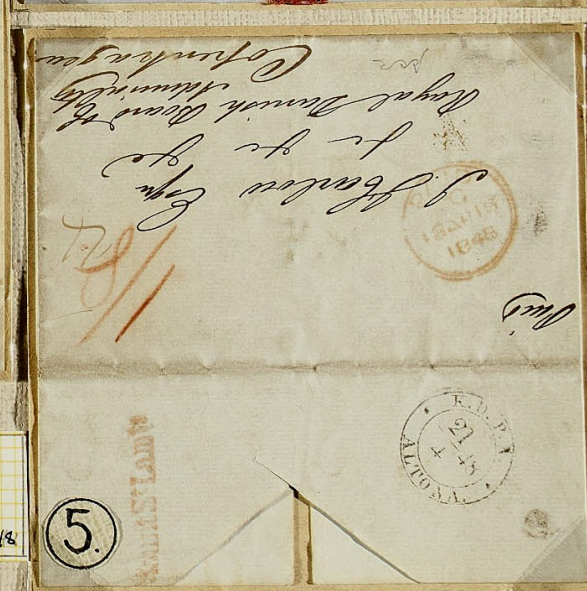 Paid
J. Harlow Esqr
&c &c &c
Royal Danish Board of
Admiralty
Copenhagen
PAID
18 AP 18
1848
1/8
K.D.P.A.
ALTONA.
21 4 48
5.